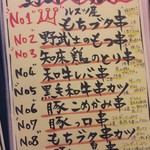 No1 ルスツ産
もちブタ串
No2 野武士のもつ串
No3 知床鶏のとり串
No4 和牛レバ串
No5 黒毛和牛串カツ
No6 豚こめかみ串
No7 豚トロ串
No8 もちブタ串カツ